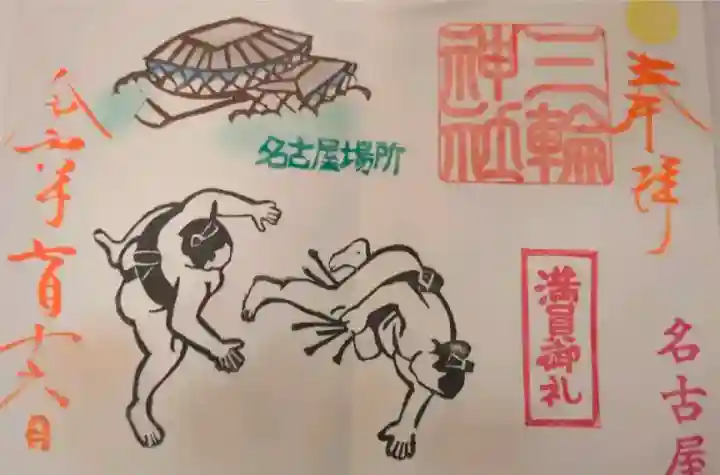 奉拝
三輪
神社
満員御礼
名古屋
名古屋場所
令和六年七月十六日